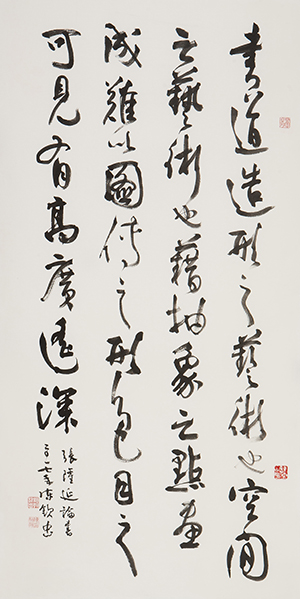 書道造形之藝術也空間
之藝術也藉抽象之點畫
成難以圖傳之形色目之
可見有高廣遙深
張隆延論書
二〇一七年陳欽忠